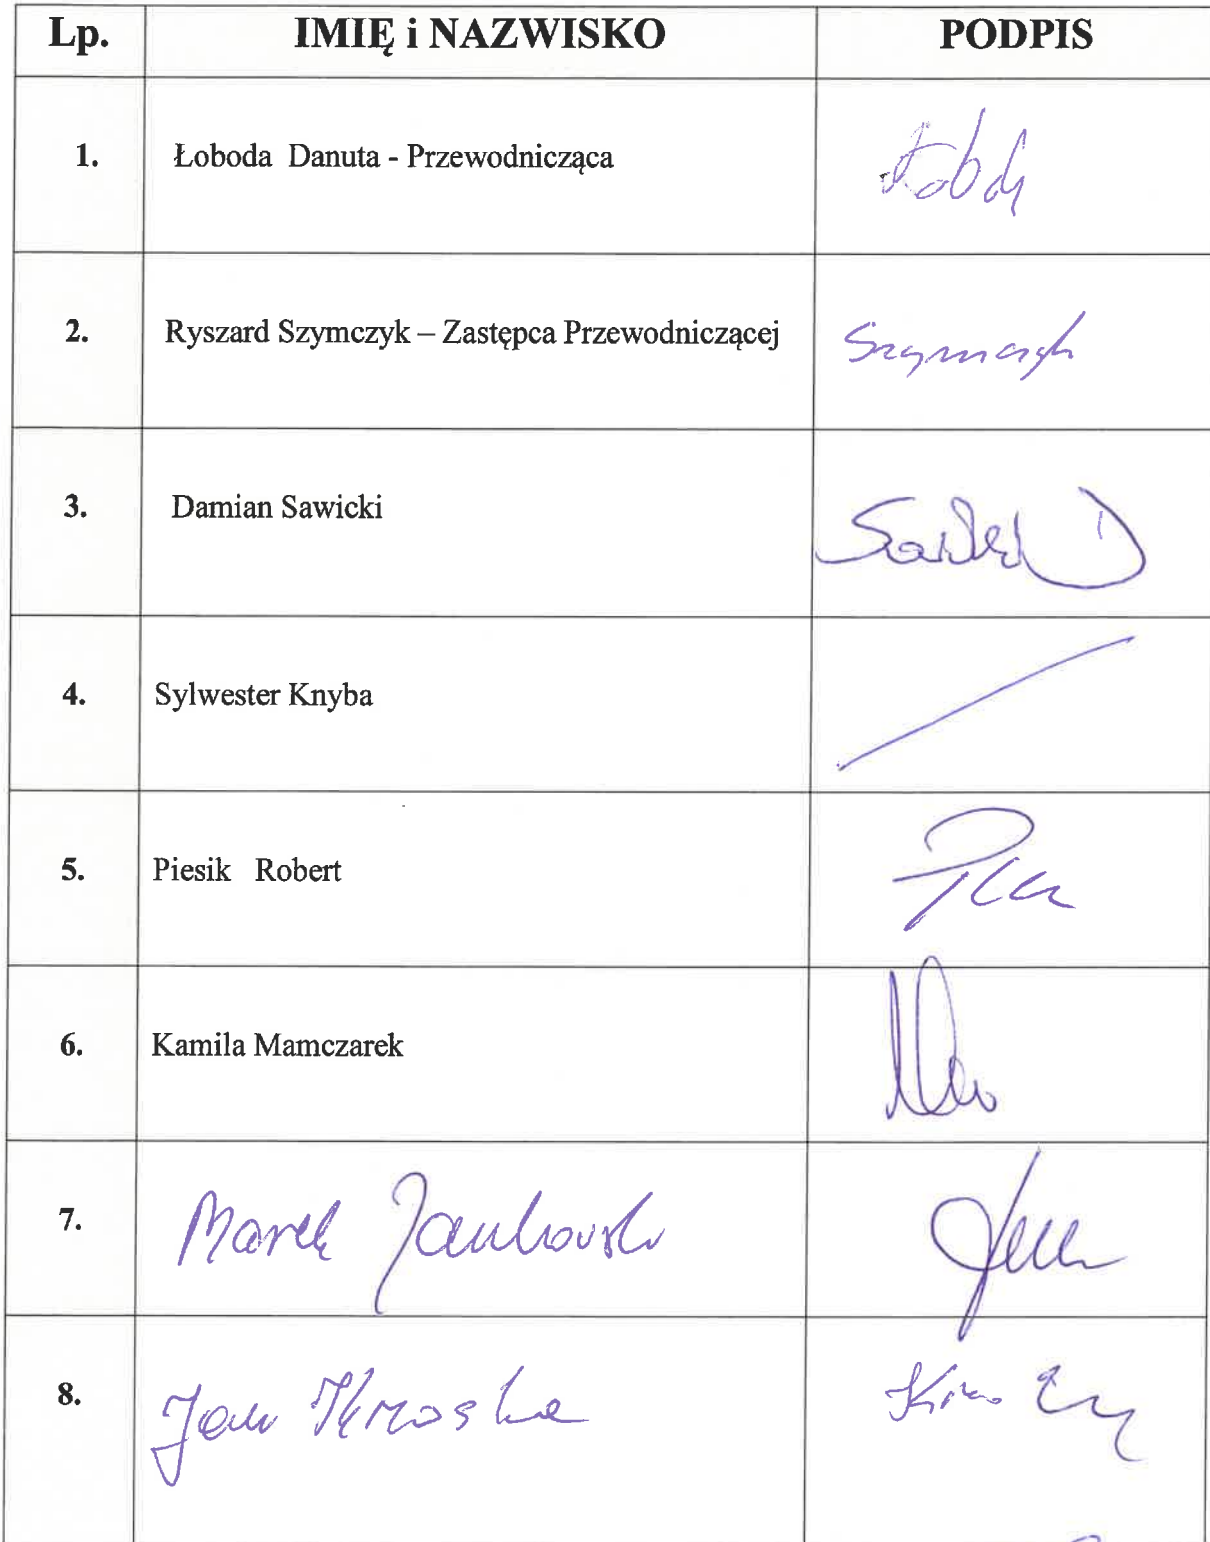 Lp. IMIĘ i NAZWISKO PODPIS
1. Łoboda Danuta - Przewodnicząca
2. Ryszard Szymczyk – Zastępca Przewodniczącej Szymczyk
3. Damian Sawicki
4. Sylwester Knyba
5. Piesik Robert
6. Kamila Mamczarek
7. Marek Jankowski
8. Jan